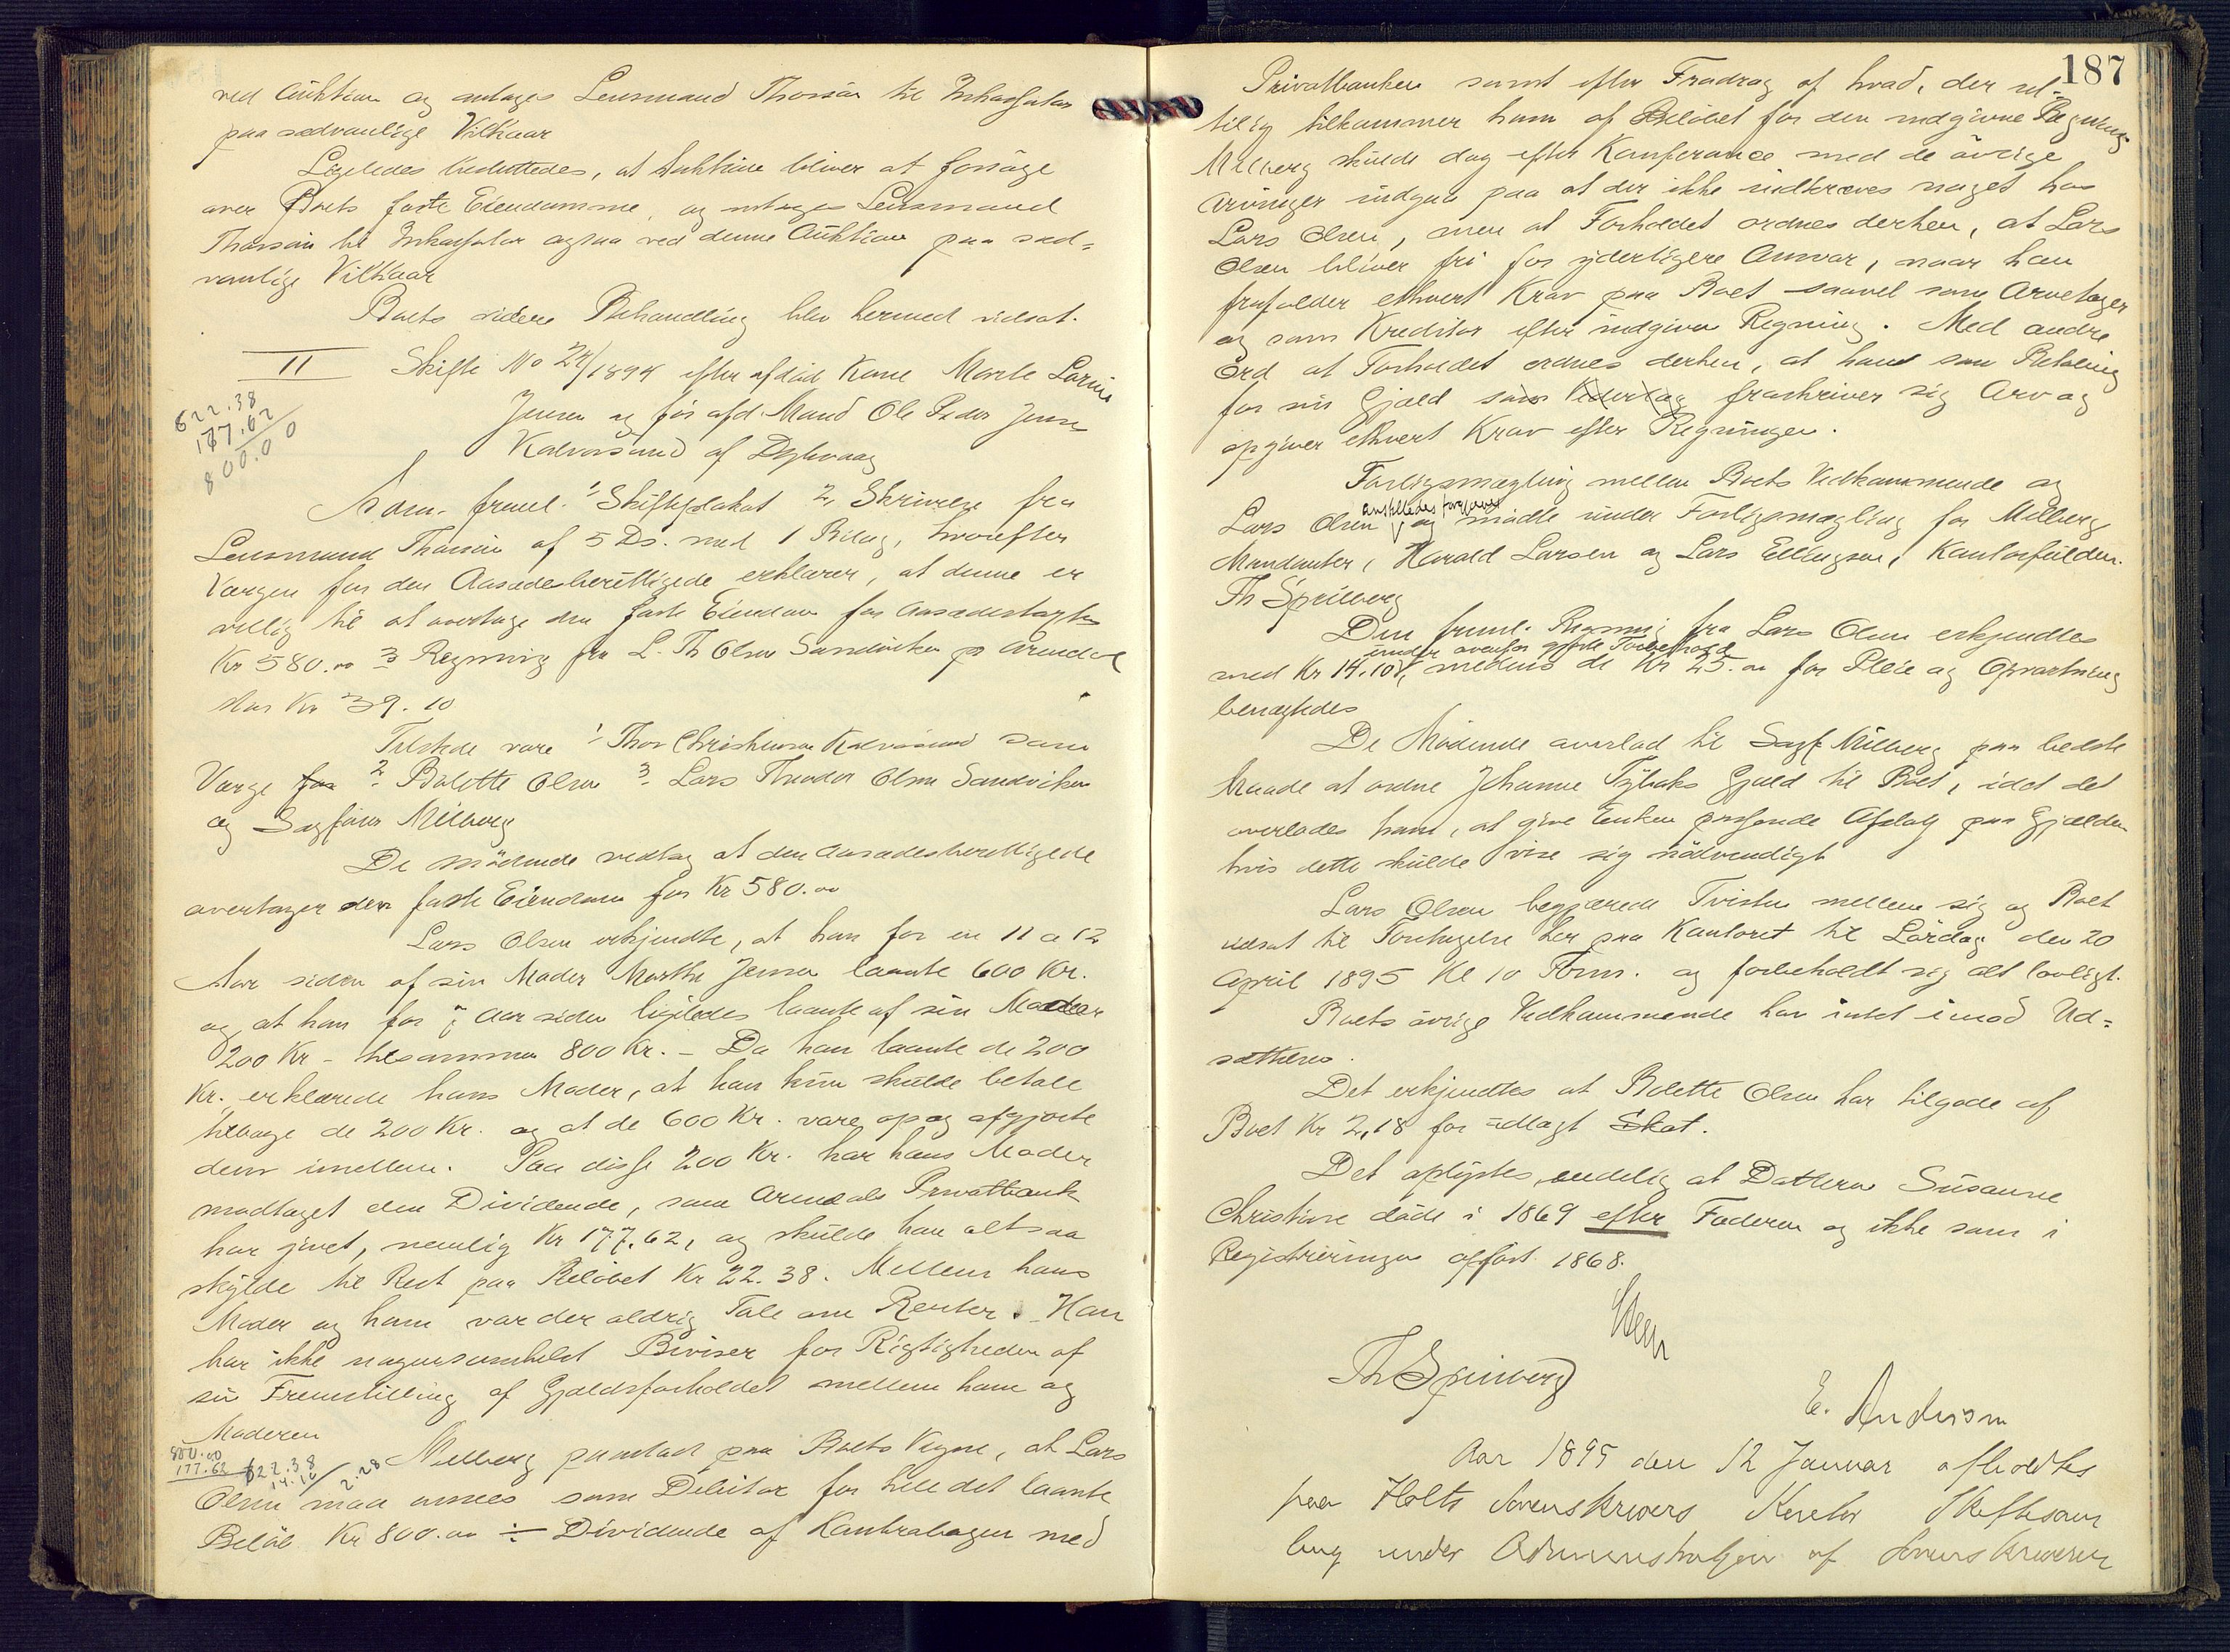 ved Auktion og antages Lensmand Thorsen til Inkassator
paa sædvanlige Vilkaar
Ligeledes besluttedes, at Auktion bliver at forsøge
over Boets faste Eiendomme, og antages Lensmand
Thorsen til Inkassator ogsaa ved denne Auktion paa sæd=
vanlige Vilkaar
Boets videre Behandling blev hermed udsat.
II Skifte No 24/1894 efter afdød Kone Marte Lovise
Jensen og før afd. Mand Ole Peder Jensen
Kalvøsund af Dybvaag
622.38
177.62
800.00
Adm. freml. 1, Skifteplakat 2, Skrivelse fra
Lensmand Thorsen af 5 Ds. med 1 Bilag, hvorefter
Værgen for den Aasædesberettigede erklærer, at denne er
villig til at overtage den faste Eiendom for Aasædestaxten
Kr 580.00 3 Regning fra L. Th Olsen Sandviken pr Arendal
stor Kr 39.10
Tilstede vare 1, Thor Christensen Kalvøsund som
Værge for 2 Bolette Olsen 3. Lars Theodor Olsen Sandviken
og Sagfører Milberg
De mødende vedtog at den Aasædesberettigede
overtager den faste Eiendom for Kr 580.00
Lars Olsen erkjendte, at han for en 11 a 12
Aar siden af sin Moder Marthe Jensen laante 600 Kr.
og at han for Aar siden ligeledes laante af sin Moder
200 Kr - tilsammen 800 Kr. - Da han laante de 200
Kr. erklærede hans Moder, at han kun skulde betale
tilbage de 200 Kr. og at de 600 Kr. vare op og afgjorte
dem imellem. Paa disse 200 Kr. har hans Moder
modtaget den Dividende, som Arendals Privatbank
har givet, nemlig Kr 177.62, og skulde han altsaa
skylde til Rest paa Beløbet Kr 22.38. Mellem hans
Moder og ham var der aldrig Tale om Renter. - Han
har ikke nogensomhelst Beviser for Rigtigheden af
sin Fremstilling af Gjældsforholdet mellem ham og
Moderen
800.00
177.62 622.38
14.10 2.28
Milberg paastod paa Boets Vegne, at Lars
Olsen maa ansees som Debitor for hele det laante
Beløb Kr 800.00 ÷ Dividende af Kontrabogen med
187
Privatbanken samt efter Fradrag af hvad, der ret-
telig tilkommer ham af Beløbet for den indgivne Regning
Milberg skulde dog efter Konferance med de øvrige
Arvinger indgaa paa at der ikke indkræves noget hos
Lars Olsen, men at Forholdet ordnes derhen, at Lars
Olsen bliver fri for yderligere Ansvar, naar han
frafalder ethvert Krav paa Boet saavel som Arvetager
og som Kreditor efter indgiven Regning. Med andre
Ord at Forholdet ordnes derhen, at han som Betaling
for sin Gjæld som Vederlag fraskriver sig Arv og
opgiver ethvert Krav efter Regningen.
Forligsmægling mellem Boets Vedkommende og
anstilledes forgjæves
Lars Olsen og mødte under Forligsmægling for Milberg
Mandanter, Harald Larsen og Lars Ellingsen, Kontorfuldm.
Th Spilberg
Den freml. Regning fra Lars Olsen erkjendtes
under ovenfor gjorte Forbehold
med Kr 14.10, medens de Kr 25.00 for Pleie og Opvartning
benægtedes
De Mødende overlod til Sagf Milberg paa bedste
Maade at ordne Johanne Gjæld til Boet, idet det
overlades ham, at give Enken passende Afslag paa Gjælden
hvis dette skulde vise sig nødvendigt
Lars Olsen begjærede Tvisten mellem sig og Boet
udsat til Foretagelse her paa Kontoret til Lørdag den 20
April 1895 Kl 10 Form. og forbeholdt sig alt lovligt.
Boets øvrige Vedkommende har intet imod Ud=
sættelsen.
Det erkjendtes at Bolette Olsen har tilgode af
Boet Kr 2,18 for udlagt Skat.
Det oplystes endelig at Datteren Susanne
Christine døde i 1869 efter Faderen og ikke som i
Registreringen opført 1868.
E. Anderson
Aar 1895 den 12 Januar afholdtes
paa Holts Sorenskrivers Kontor Skiftesam
ling under Administration af Sorenskriveren